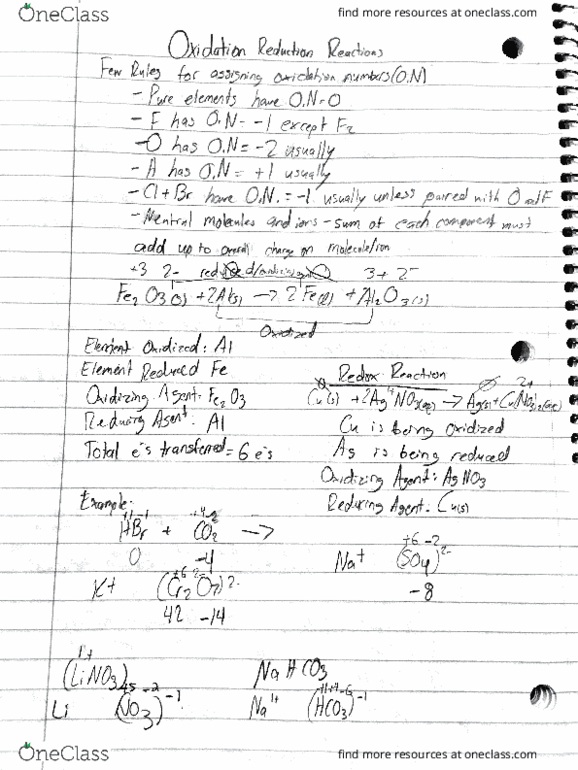 OneClass
find more resources at oneclass.com
Oxidation Reduction Reactions
Few Rules for assigning oxidation numbers (O.N)
- Pure elements have O.N=0
- F has O.N= -1 except F2
- O has O.N = -2 usually
- H has O.N = +1 usually
- Cl + Br have O.N. = -1 usually unless paired with O and F
- Neutral molecules and ions - sum of each component must
add up to overall charge on molecule/ion
+3 2- 3+ 2-
Fe2 O3(s) + 2Al(s) → 2 Fe(l) + Al2O3(s)
Oxidized
Element Oxidized: Al
Element Reduced Fe
Oxidizing Agent: Fe2O3
Reducing Agent: Al
Total e's transferred = 6 e's
Redox Reaction
Cu(s) + 2Ag NO3(aq) → Ag(s) + Cu(NO3)2(aq)
Cu is being oxidized
Ag is being reduced
Oxidizing Agent: AgNO3
Reducing Agent: Cu(s)
Example:
+1 -1 +4 -2
HBr + CO2 →
0 -4
K+ (Cr2O7)2-
+6 2-
42 -14
+6 -2
Na+ (SO4)2-
-8
1+
(LiNO3)
+5 -2
Li (NO3)-1
NaHCO3
+1+4-6
Na1+ (HCO3)-1
OneClass
find more resources at oneclass.com